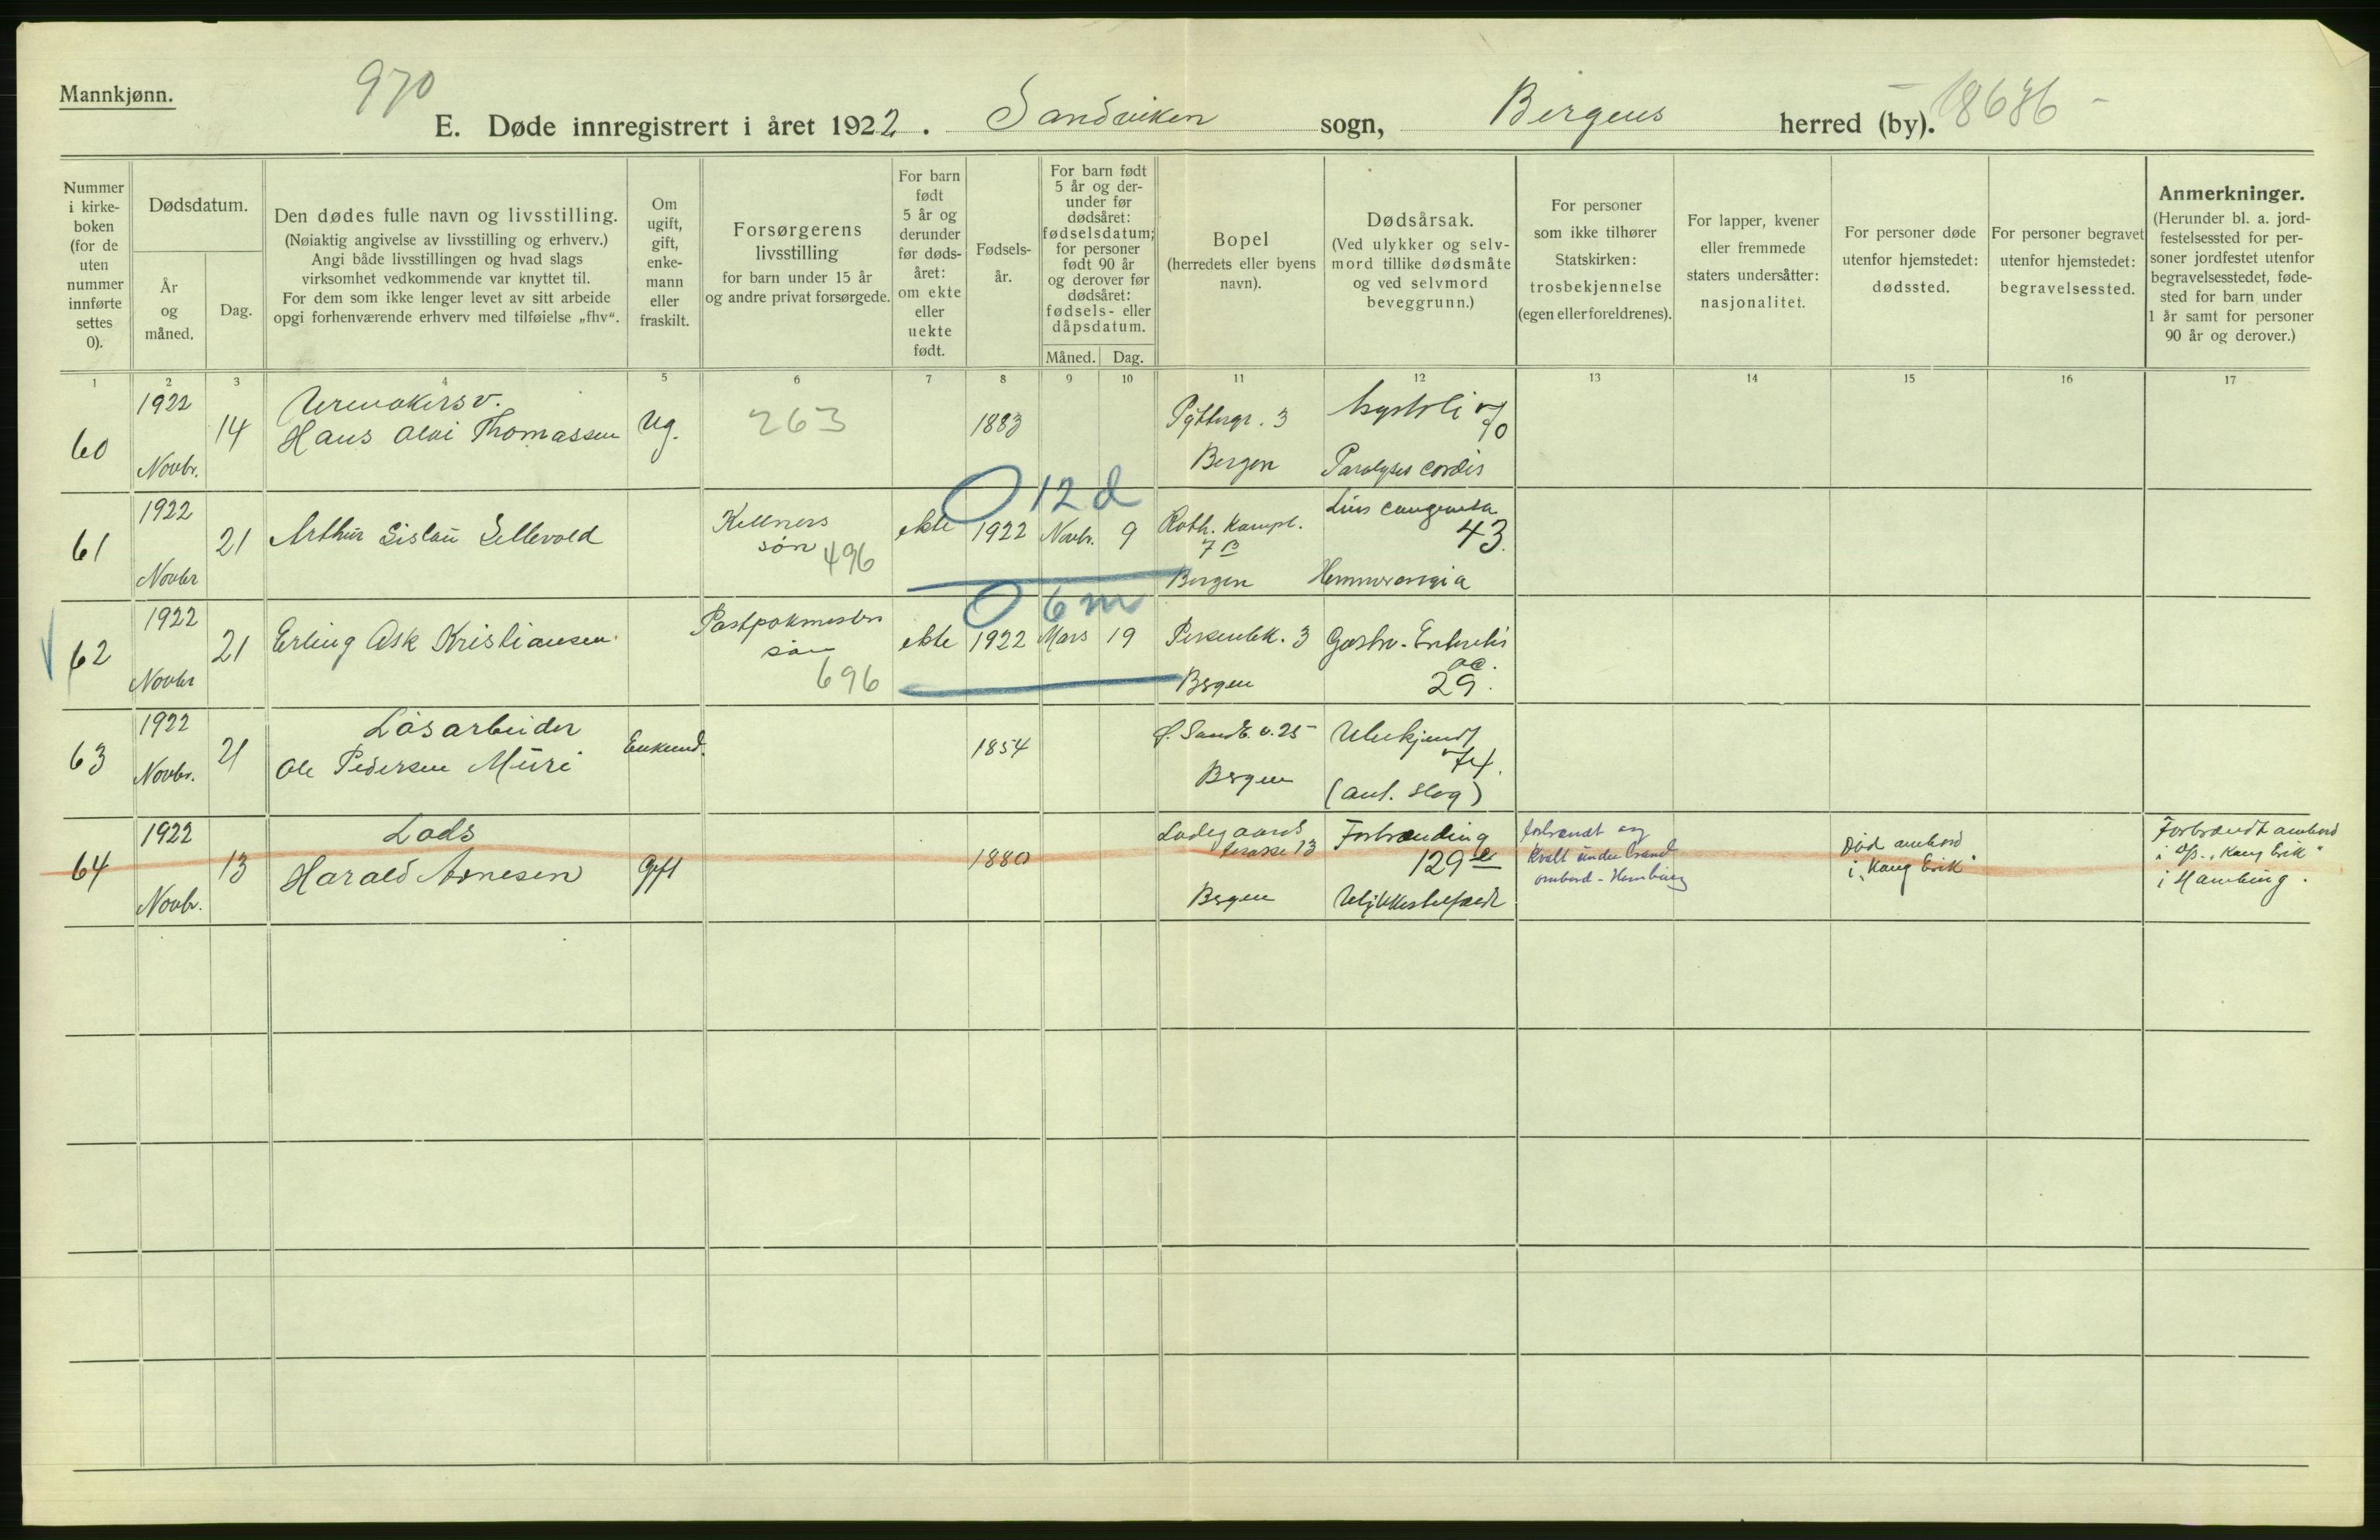 Mannkjønn.
970
E. Døde innregistrert i året 1922. Sandviken sogn, Bergens herred (by). 18686 -
Nummer i kirke- boken (for de uten nummer innførte settes 0).
Dødsdatum.
År og måned.
Dag.
Den dødes fulle navn og livsstilling.
(Nøiaktig angivelse av livsstilling og erhverv.)
Angi både livsstillingen og hvad slags
virksomhet vedkommende var knyttet til.
For dem som ikke lenger levet av sitt arbeide
opgi forhenværende erhverv med tilføielse „fhv“.
Om ugift, gift, enke- mann eller fraskilt.
Forsørgerens
livsstilling
for barn under 15 år
og andre privat forsørgede.
For barn født 5 år og derunder før døds- året: om ekte eller uekte født.
Fødsels- år.
For barn født 5 år og der- under før dødsåret: fødselsdatum; for personer født 90 år og derover før dødsåret: fødsels- eller dåpsdatum.
Måned. Dag.
Bopel
(herredets eller byens
navn).
Dødsårsak.
(Ved ulykker og selv-
mord tillike dødsmåte
og ved selvmord
beveggrunn.)
For personer
som ikke tilhører
Statskirken:
trosbekjennelse
(egen eller foreldrenes).
For lapper, kvener
eller fremmede
staters undersåtter:
nasjonalitet.
For personer døde
utenfor hjemstedet:
dødssted.
For personer begravet
utenfor hjemstedet:
begravelsessted.
Anmerkninger.
(Herunder bl. a. jord-
festelsessted for per-
soner jordfestet utenfor
begravelsesstedet, føde-
sted for barn under
1 år samt for personer
90 år og derover.)
1 2 3 4 5 6 7 8 9 10 11 12 13 14 15 16 17
60 1922 Novbr. 14 Urmakersv.
Hans Thomassen Ug. 263 1883 3
Bergen 70
Paralyses cordis
O 12 d
61 1922 Novbr 21 Arthur Sellevold Kellners
søn 496 ekte 1922 Novbr. 9 Roth. Kampl.
7 B
Bergen Lues congenita
43.
O 6 m
62 1922 Novbr 21 Erling Ask Kristiansen
søn
696 ekte 1922 Mars 19 3
Bergen Gastro-Enteritis
ac.
29.
63 1922 Novbr. 21 Løsarbeider
Ole Pedersen Muri Enkemd. 1854 25
Bergen Ubekjendt
74.
(ant. slag)
64 1922 Novbr. 13 Lods
Harald Arnesen Gift 1880 Ladegaards
terasse 13
Bergen Forbrænding
129 e
Ulykkestilfælde
forbrændt og
kvalt under brand
ombord - Hamburg
Død ombord
i „Kong Erik“
Forbrændt ombord
i D/S. „Kong Erik“
i Hamburg.